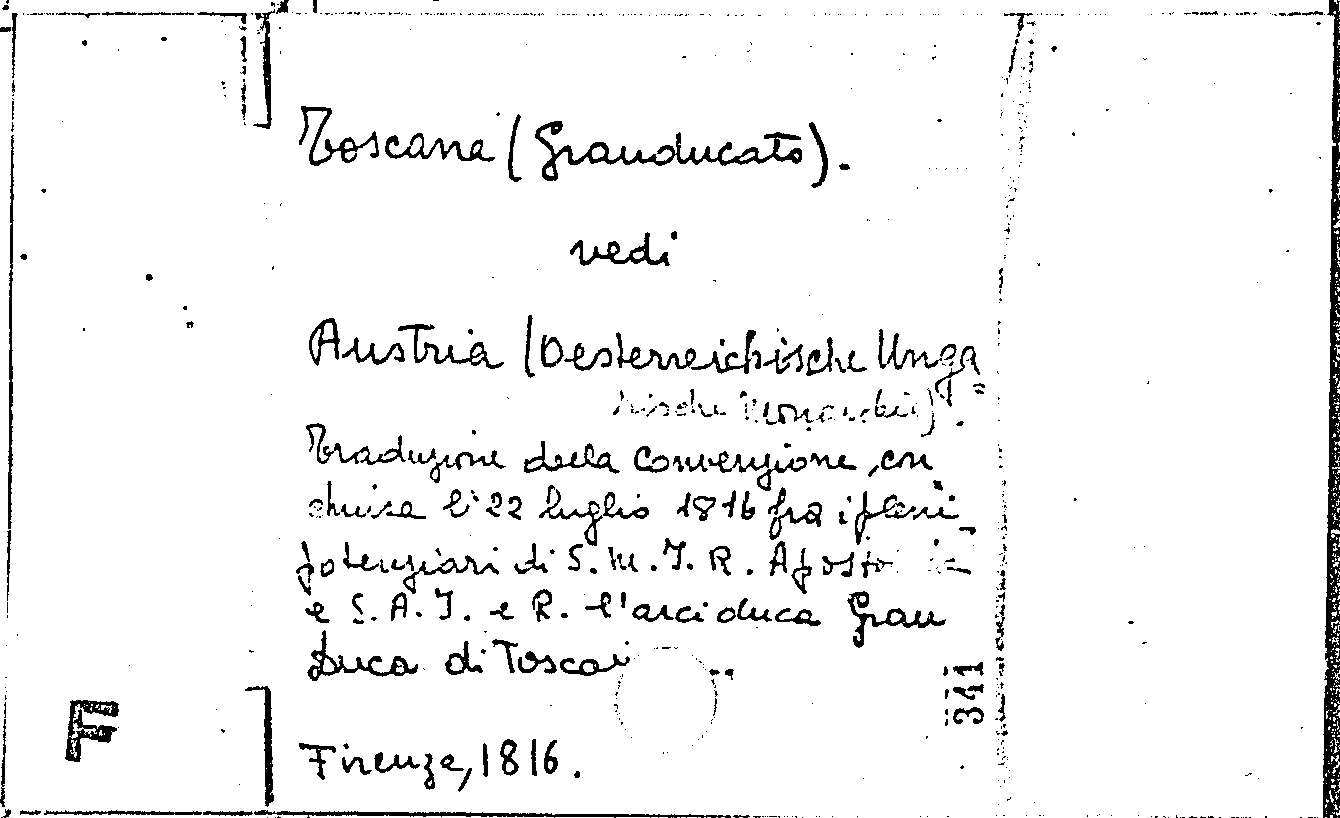 Toscana (Granducato).
vedi
Austria (Oesterreichische Unga=
rische Monarchie).
Traduzione della Convenzione, con
chiusa li 22 luglio 1816 fra i pleni_
potenziari di S. M. I. R. Aposto
e S. A. I. e R. l'arciduca Gran
Duca di Toscan ...
341
F
Firenze, 1816.